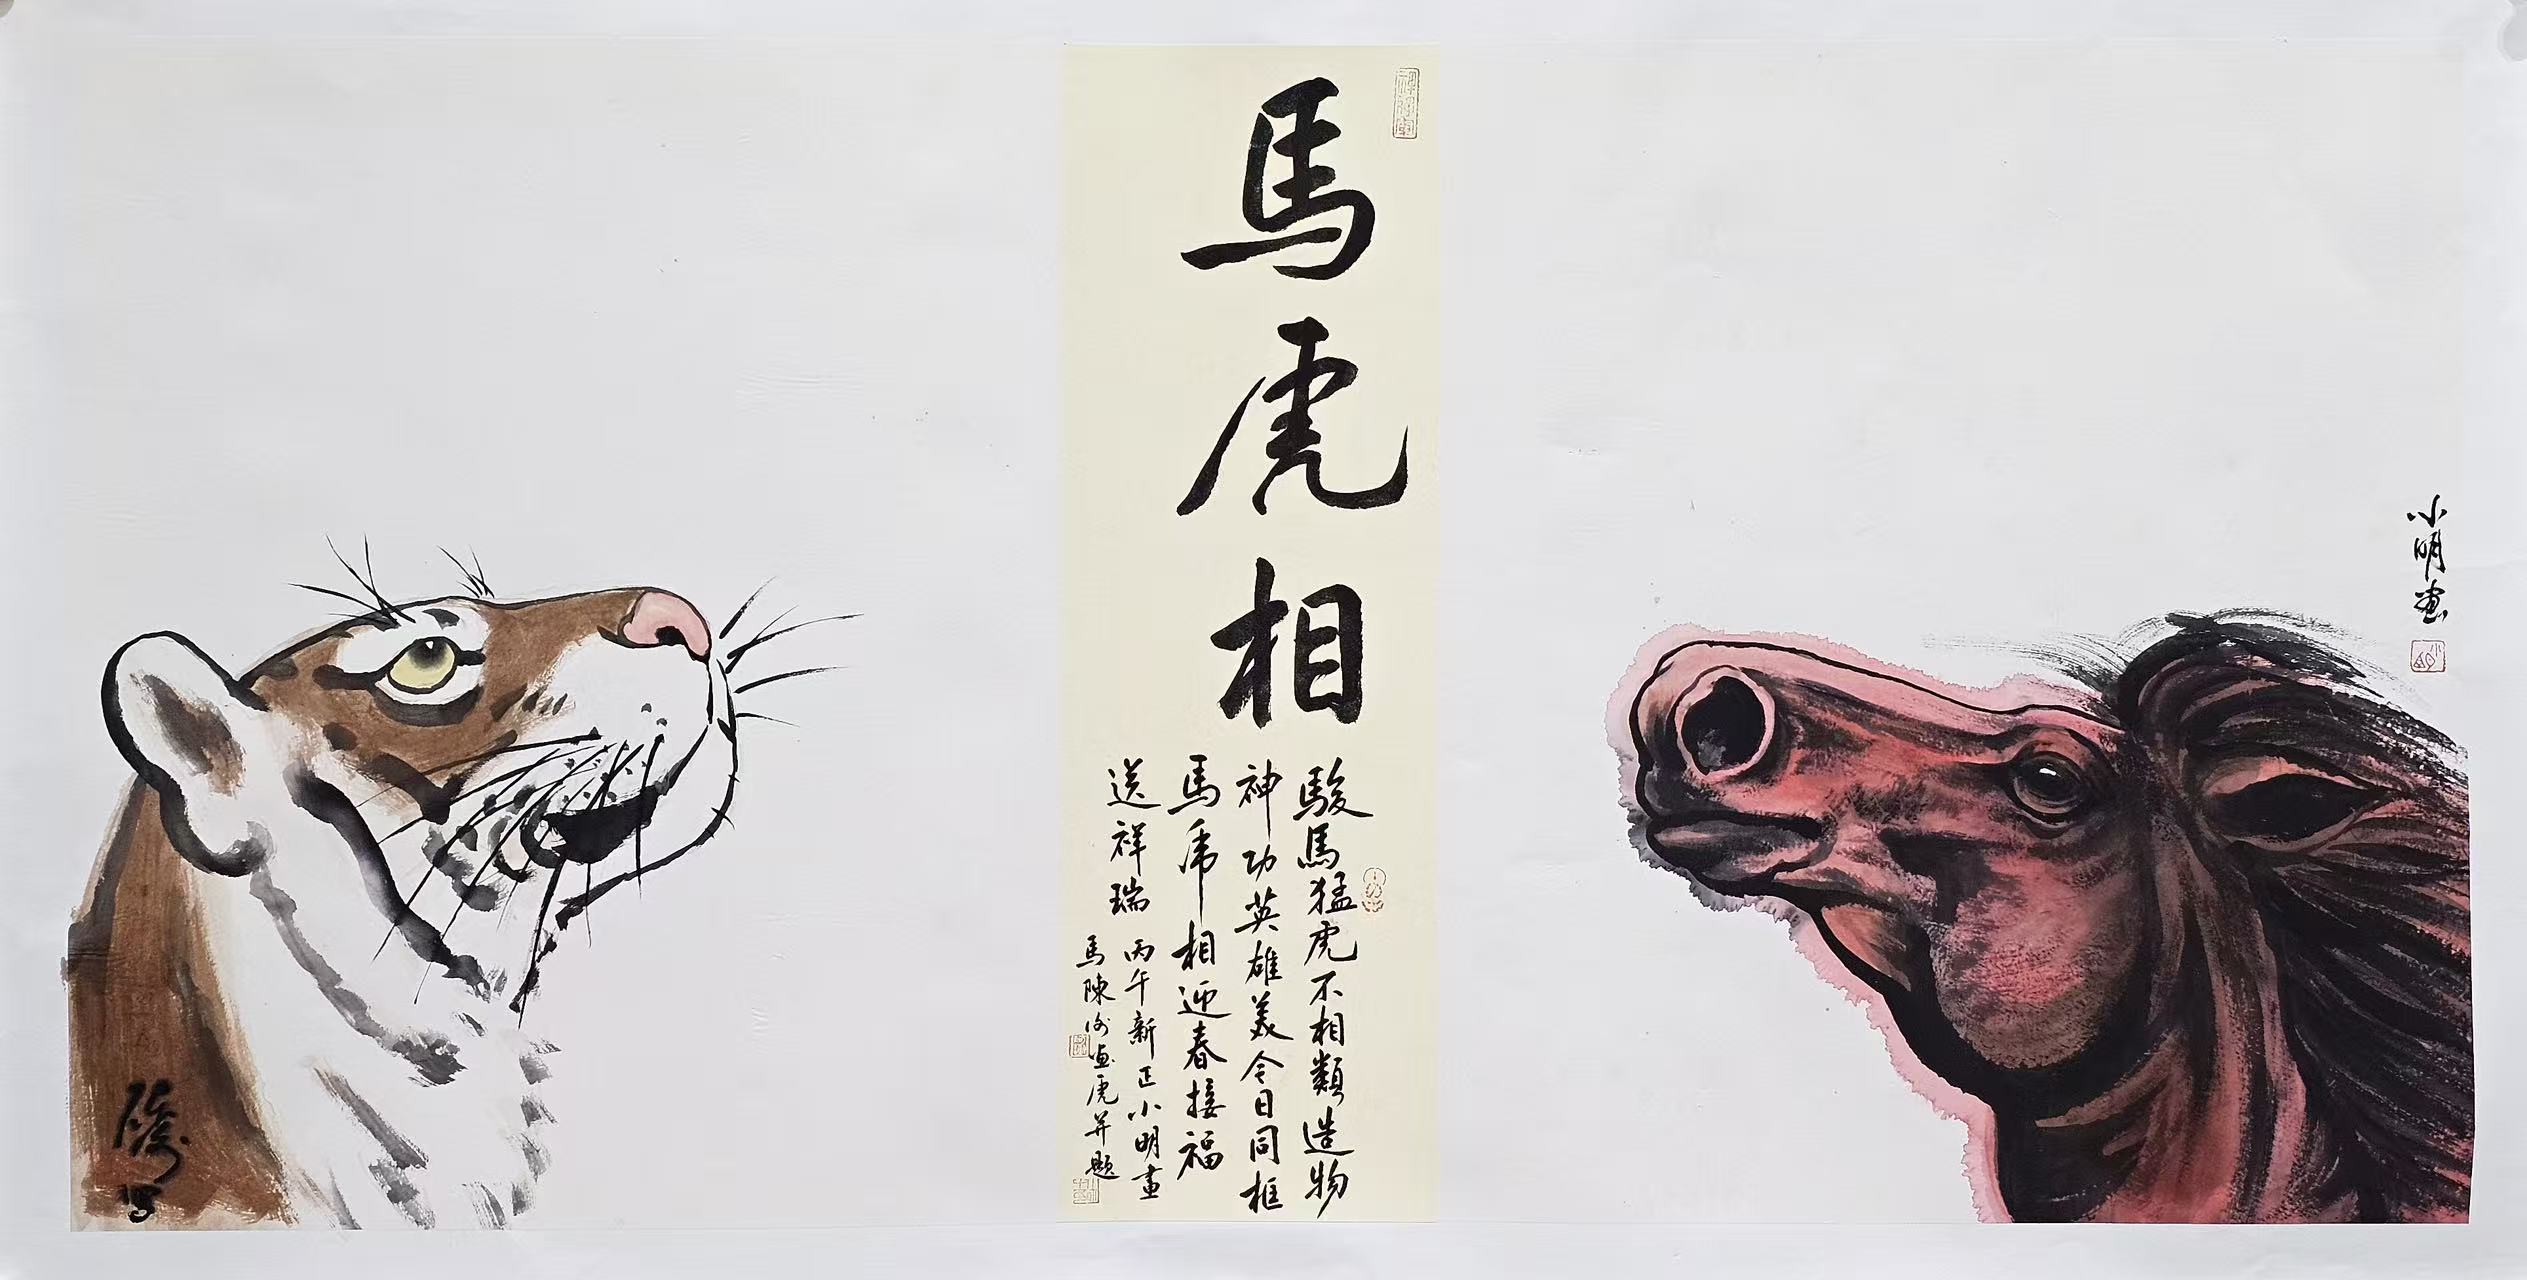 馬虎相
駿馬猛虎不相類造物
神功英雄美今日同框
馬虎相迎春接福
送祥瑞
丙午新正小明畫
馬陳 畫虎并題
小明畫